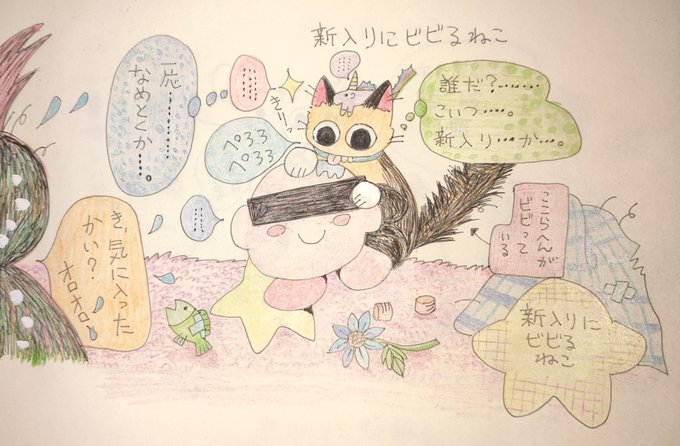 新入りにビビるねこ
誰だ?……
こいつ……。
新入り…か…。
………
………
きりっ
一応………
なめとくか……。
ペろろ
ペろろ
………
き、気に入った
かい?
オロオロ
ここらへんが
ビビって
いる
新入りに
ビビる
ねこ